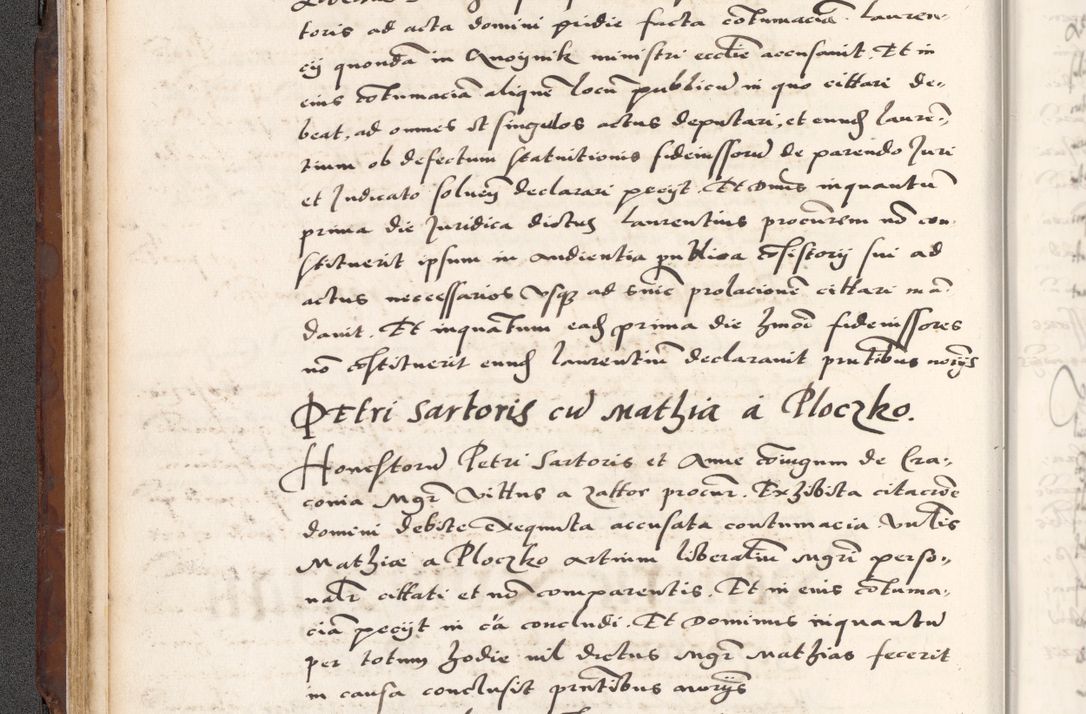 toris ad acta domini pridie facta cõtumaciã. Lauren-
cÿ quondã in Quoÿnik ministri ecclie accusavit. Et in
eius cõtumaciã aliquẽ locũ publicũ in quo cittari de-
beat, ad omnes et singulos actus deputari, et eund Lauren-
tium ob defectum statuitionis fideiussorũ de parendo Juri
et Judicato solven declarari peciÿt. Et Dnus inquantũ
prima die Juridica dictus Laurentius procurem nõ con-
stituerit ipsum in audientia publica cõsistorÿ sui ad
actus neccessarios usq ad snie prolacionẽ cittari mã-
davit. Et inquãtum ead prima die hmoi fideiussores
nõ cõstituerit eund Laurentiũ declaravit pntibus norÿs
Petri Sartoris cũ Mathia à Ploczko.
Honestorũ Petri Sartoris et Anne cõiugum de Cra-
covia Mgr Vittus a Zattor procur. Exhibita citacioẽ
domini debite exequuta accusata contumacia Vnlis
Mathiæ a Ploczko artium liberaliũ Mgri perso-
nalr cittati et nõ comparentis. Et in eius cõtuma-
ciã peciÿt in cã concludi. Et Dominus inquantũ
per totum hodie nil dictus Mgr Mathias fecerit
in causa conclusit pntibus norÿs